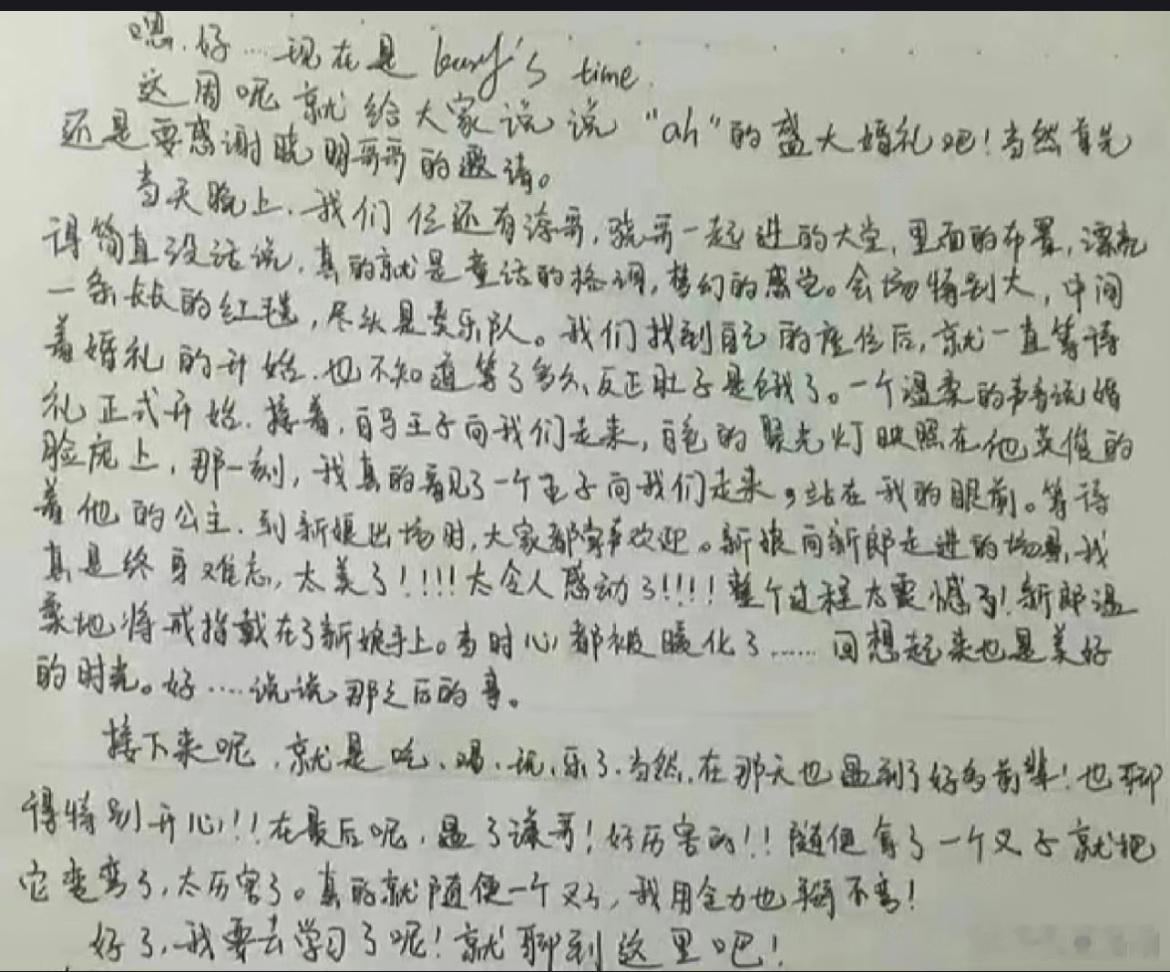 嗯，好……现在是 's time.
这周呢就给大家说说"ah"的盛大婚礼吧！当然首先
还是要感谢晓明哥哥的邀请。
当天晚上，我们 还有涛哥，骁哥一起进的大堂，里面的布置，漂亮
得简直没话说，真的就是童话的格调，梦幻的感觉。会场特别大，中间
一条长长的红毯，尽头是 乐队。我们找到自己的座位后，就一直等待
着婚礼的开始。也不知道等了多久，反正肚子是饿了。一个温柔的声音说婚
礼正式开始，接着，白马王子向我们走来，白色的聚光灯映照在他英俊的
脸庞上，那一刻，我真的看见了一个王子向我们走来，站在我的眼前。等待
着他的公主，到新娘出场时，大家都 欢迎。新娘向新郎走进的场景，我
真是终身难忘，太美了！！！！太令人感动了！！！！整个过程太震憾了！新郎温
柔地将戒指戴在了新娘手上。当时心都被暖化了……回想起来也是美好
的时光。好……说说那之后的事。
接下来呢，就是吃、喝、玩、乐了，当然，在那天也遇到了好多前辈！也聊
得特别开心！！在最后呢，遇了谦哥！好厉害的！！随便拿了一个叉子就把
它变弯了，太厉害了。真的就随便一个叉子，我用全力也掰不弯！
好了，我要去学习了呢！就聊到这里吧！